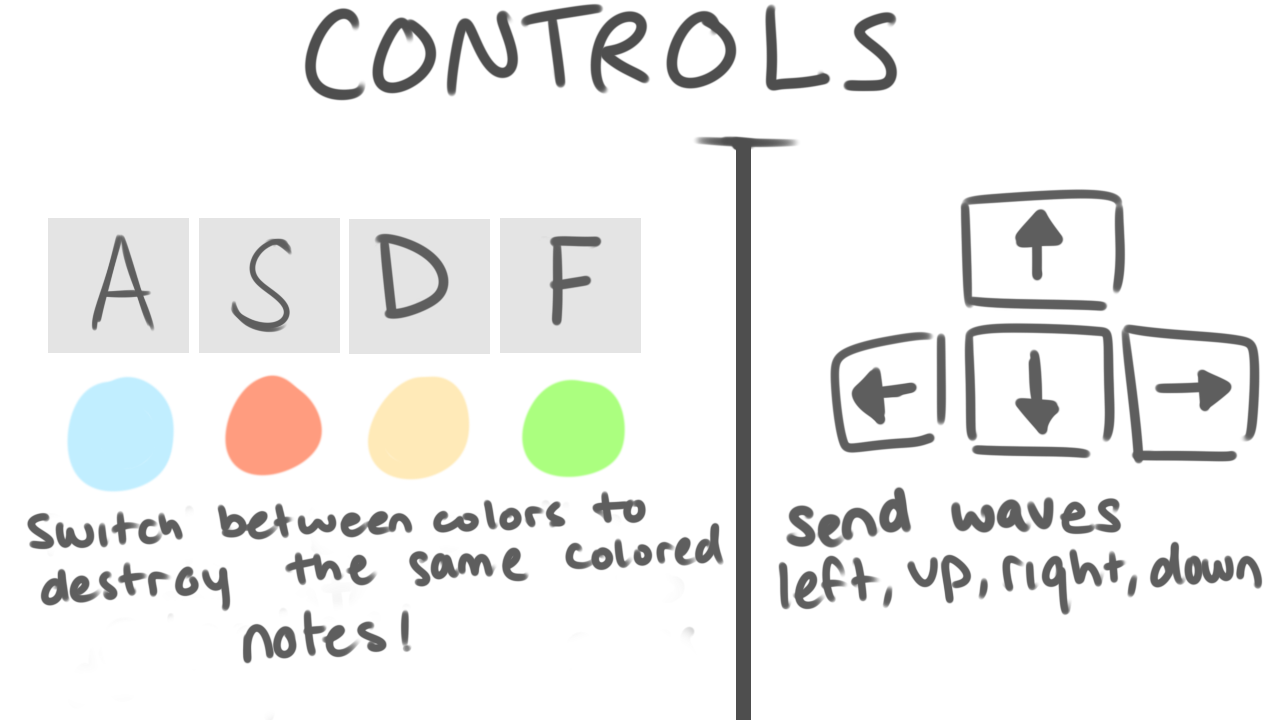 CONTROLS
A S D F
Switch between colors to
destroy the same colored
notes!
send waves
left, up, right, down